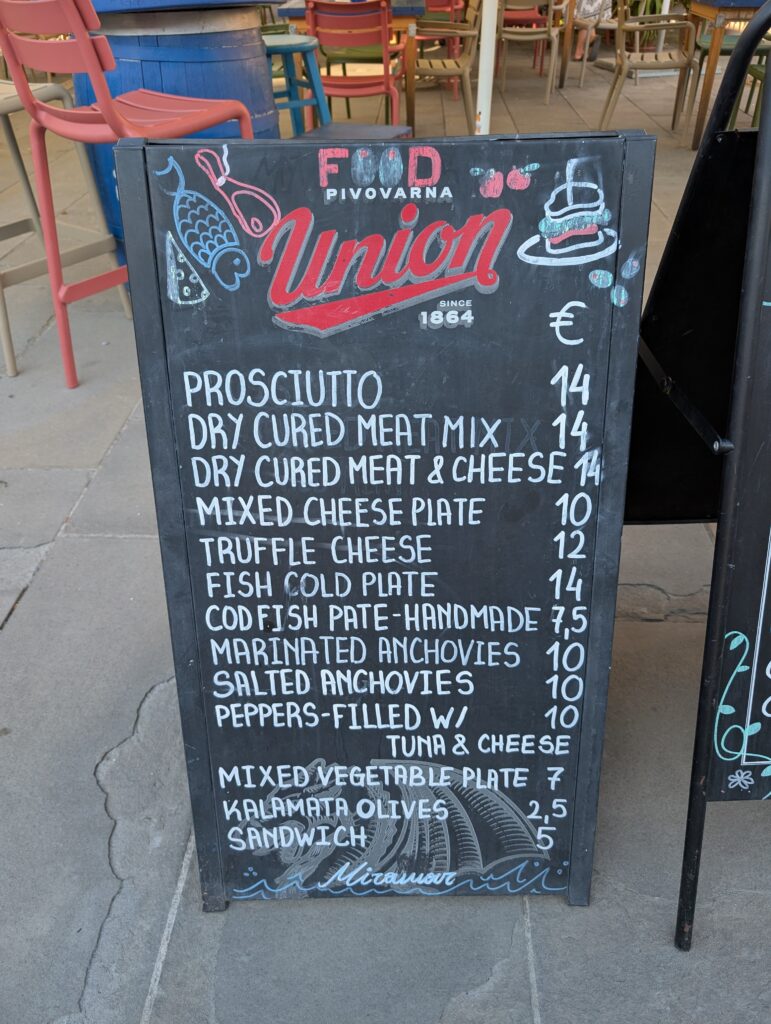 FOOD
PIVOVARNA
Union
SINCE
1864
€
PROSCIUTTO 14
DRY CURED MEAT MIX 14
DRY CURED MEAT & CHEESE 14
MIXED CHEESE PLATE 10
TRUFFLE CHEESE 12
FISH COLD PLATE 14
CODFISH PATE-HANDMADE 7,5
MARINATED ANCHOVIES 10
SALTED ANCHOVIES 10
PEPPERS-FILLED W/ 10
TUNA & CHEESE
MIXED VEGETABLE PLATE 7
KALAMATA OLIVES 2,5
SANDWICH 5
Miramar